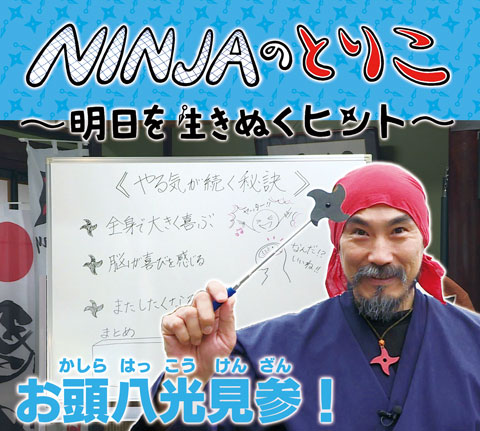 NINJAのとりこ
～明日を生きぬくヒント～
《やる気が続く秘訣》
全身で大きく喜ぶ
脳が喜びを感じる
またしたくなる
まとめ
なんだ!?
いいね!!
かしら はっ こう けん ざん
お頭八光見参！